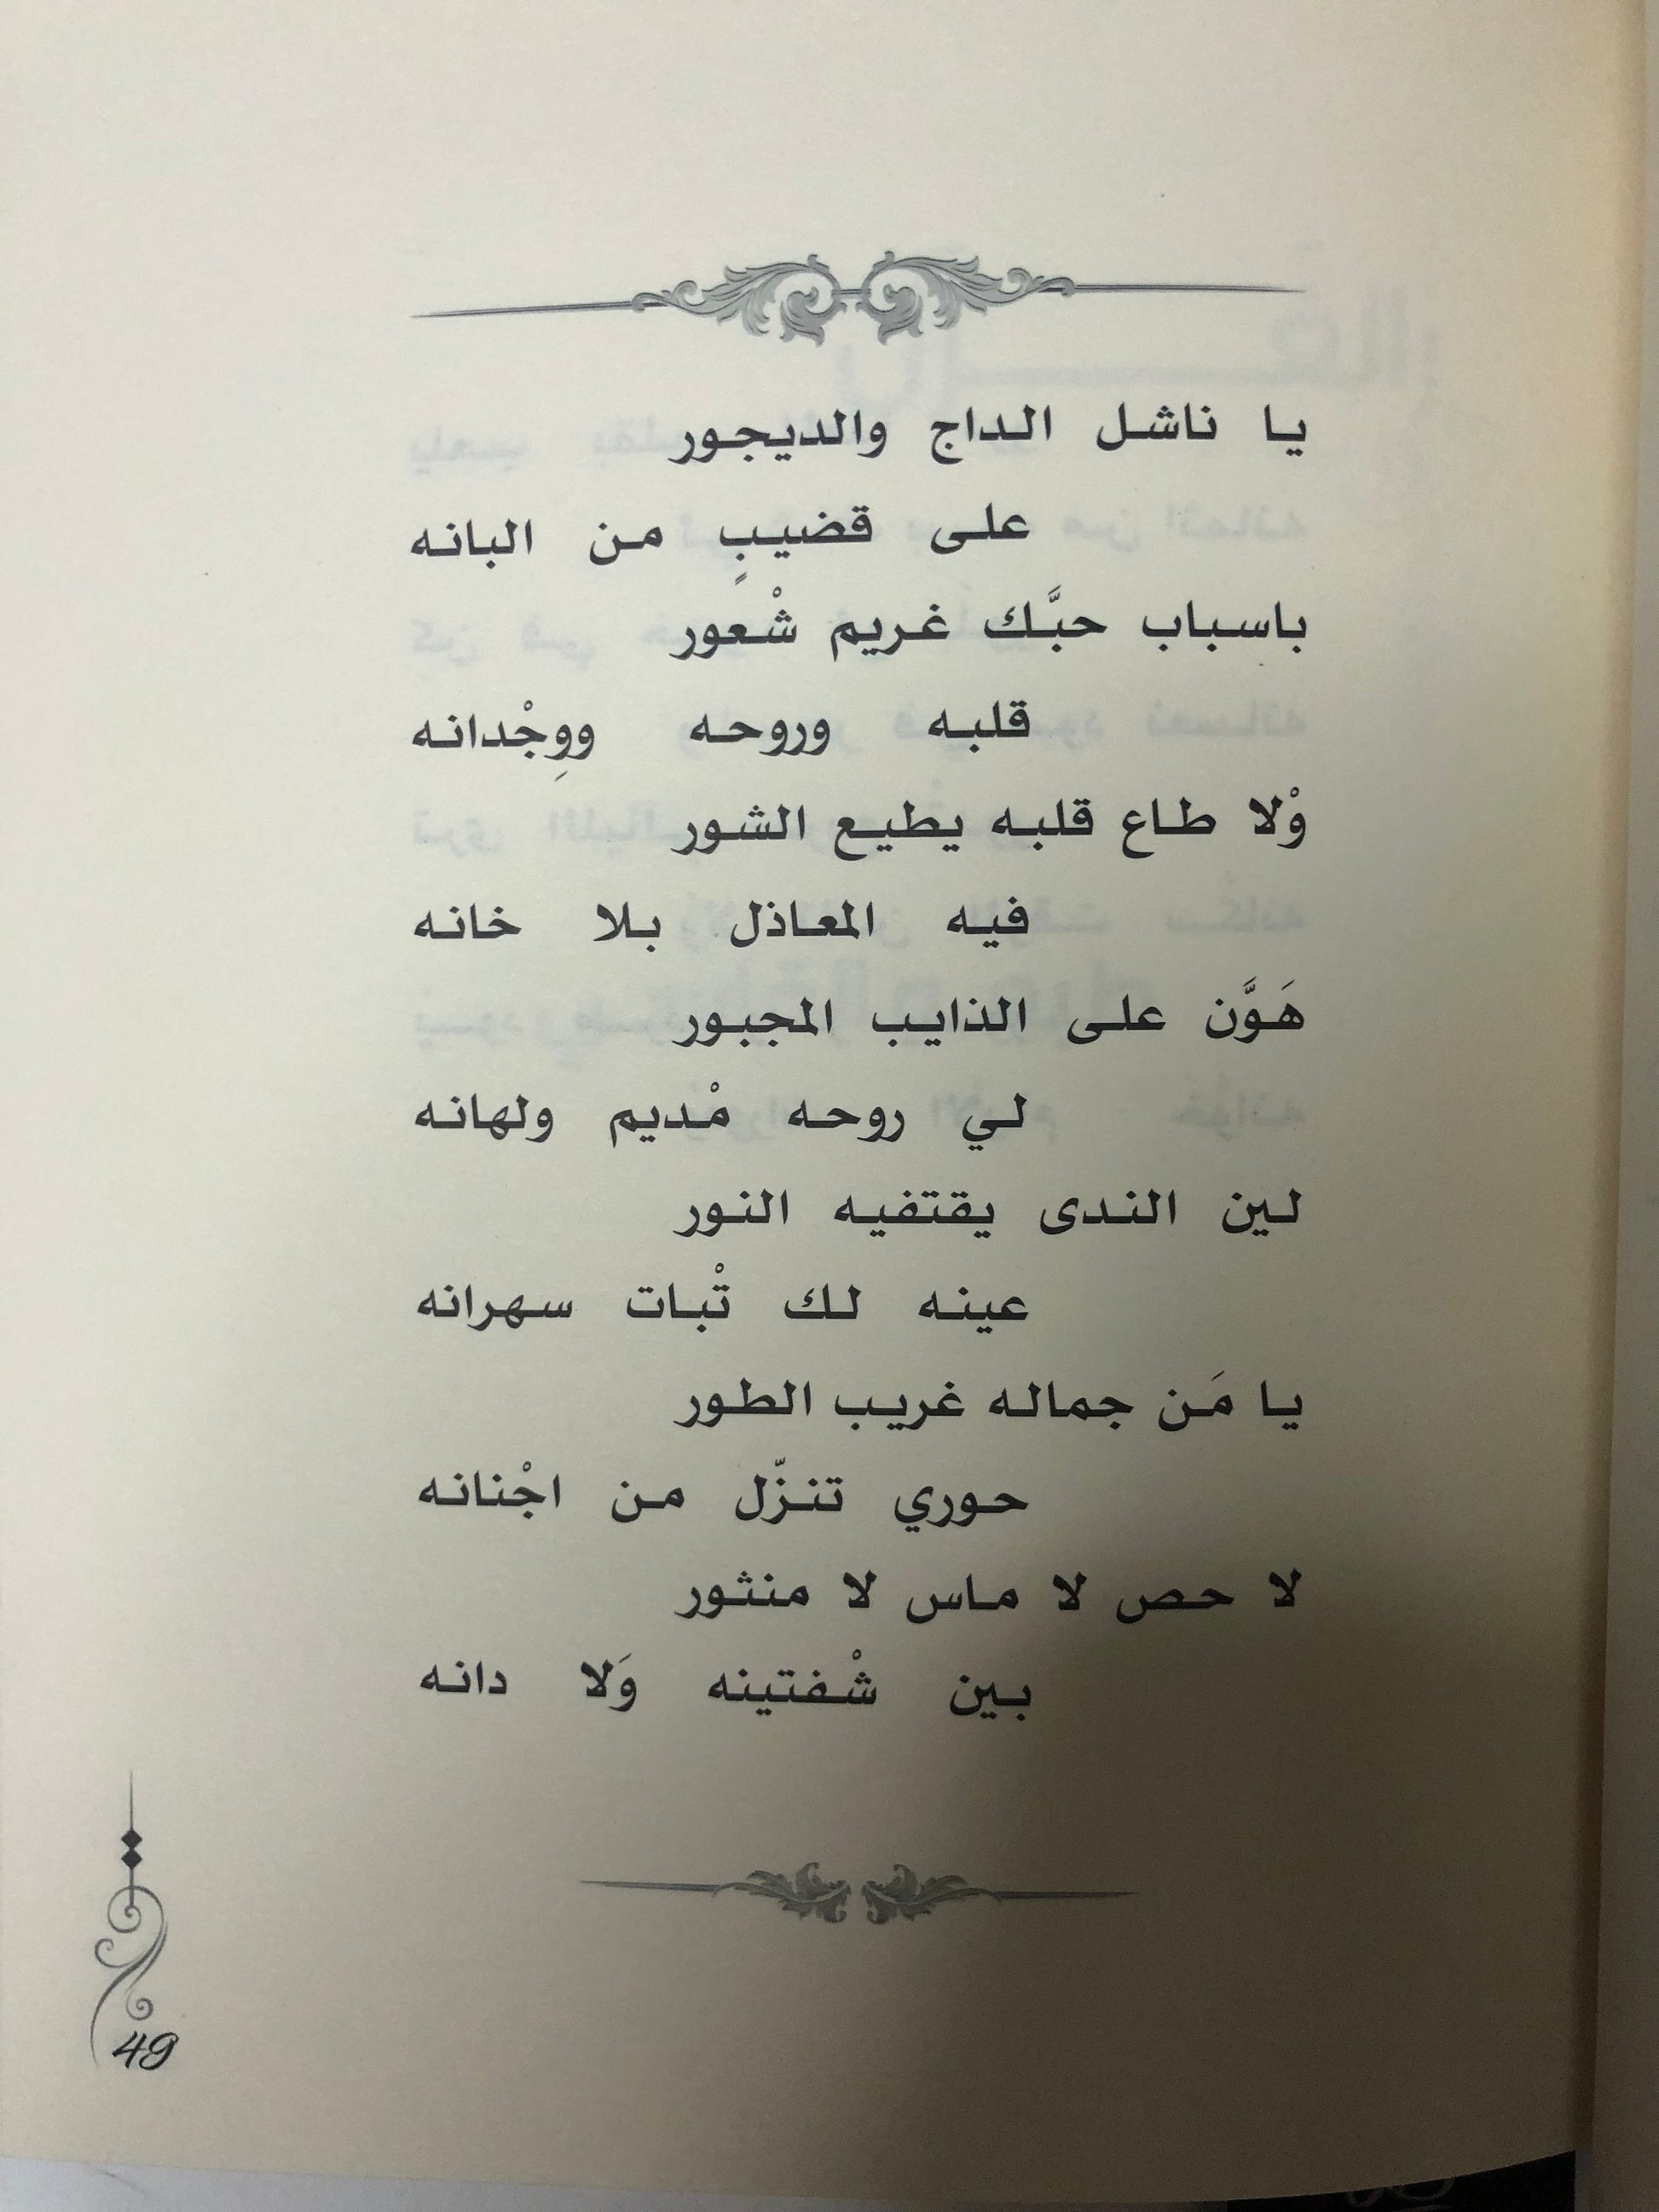 يا ناشل الداج والديجور
على قضيبٍ من البانه
باسباب حبَّك غريم شْعور
قلبه وروحه ووِجْدانه
وْلا طاع قلبه يطيع الشور
فيه المعاذل بلا خانه
هَوَّن على الذايب المجبور
لي روحه مْديم ولهانه
لين الندى يقتفيه النور
عينه لك تْبات سهرانه
يا مَن جماله غريب الطور
حوري تنزّل من اجْنانه
لا حص لا ماس لا منثور
بين شْفتينه وَلا دانه
49